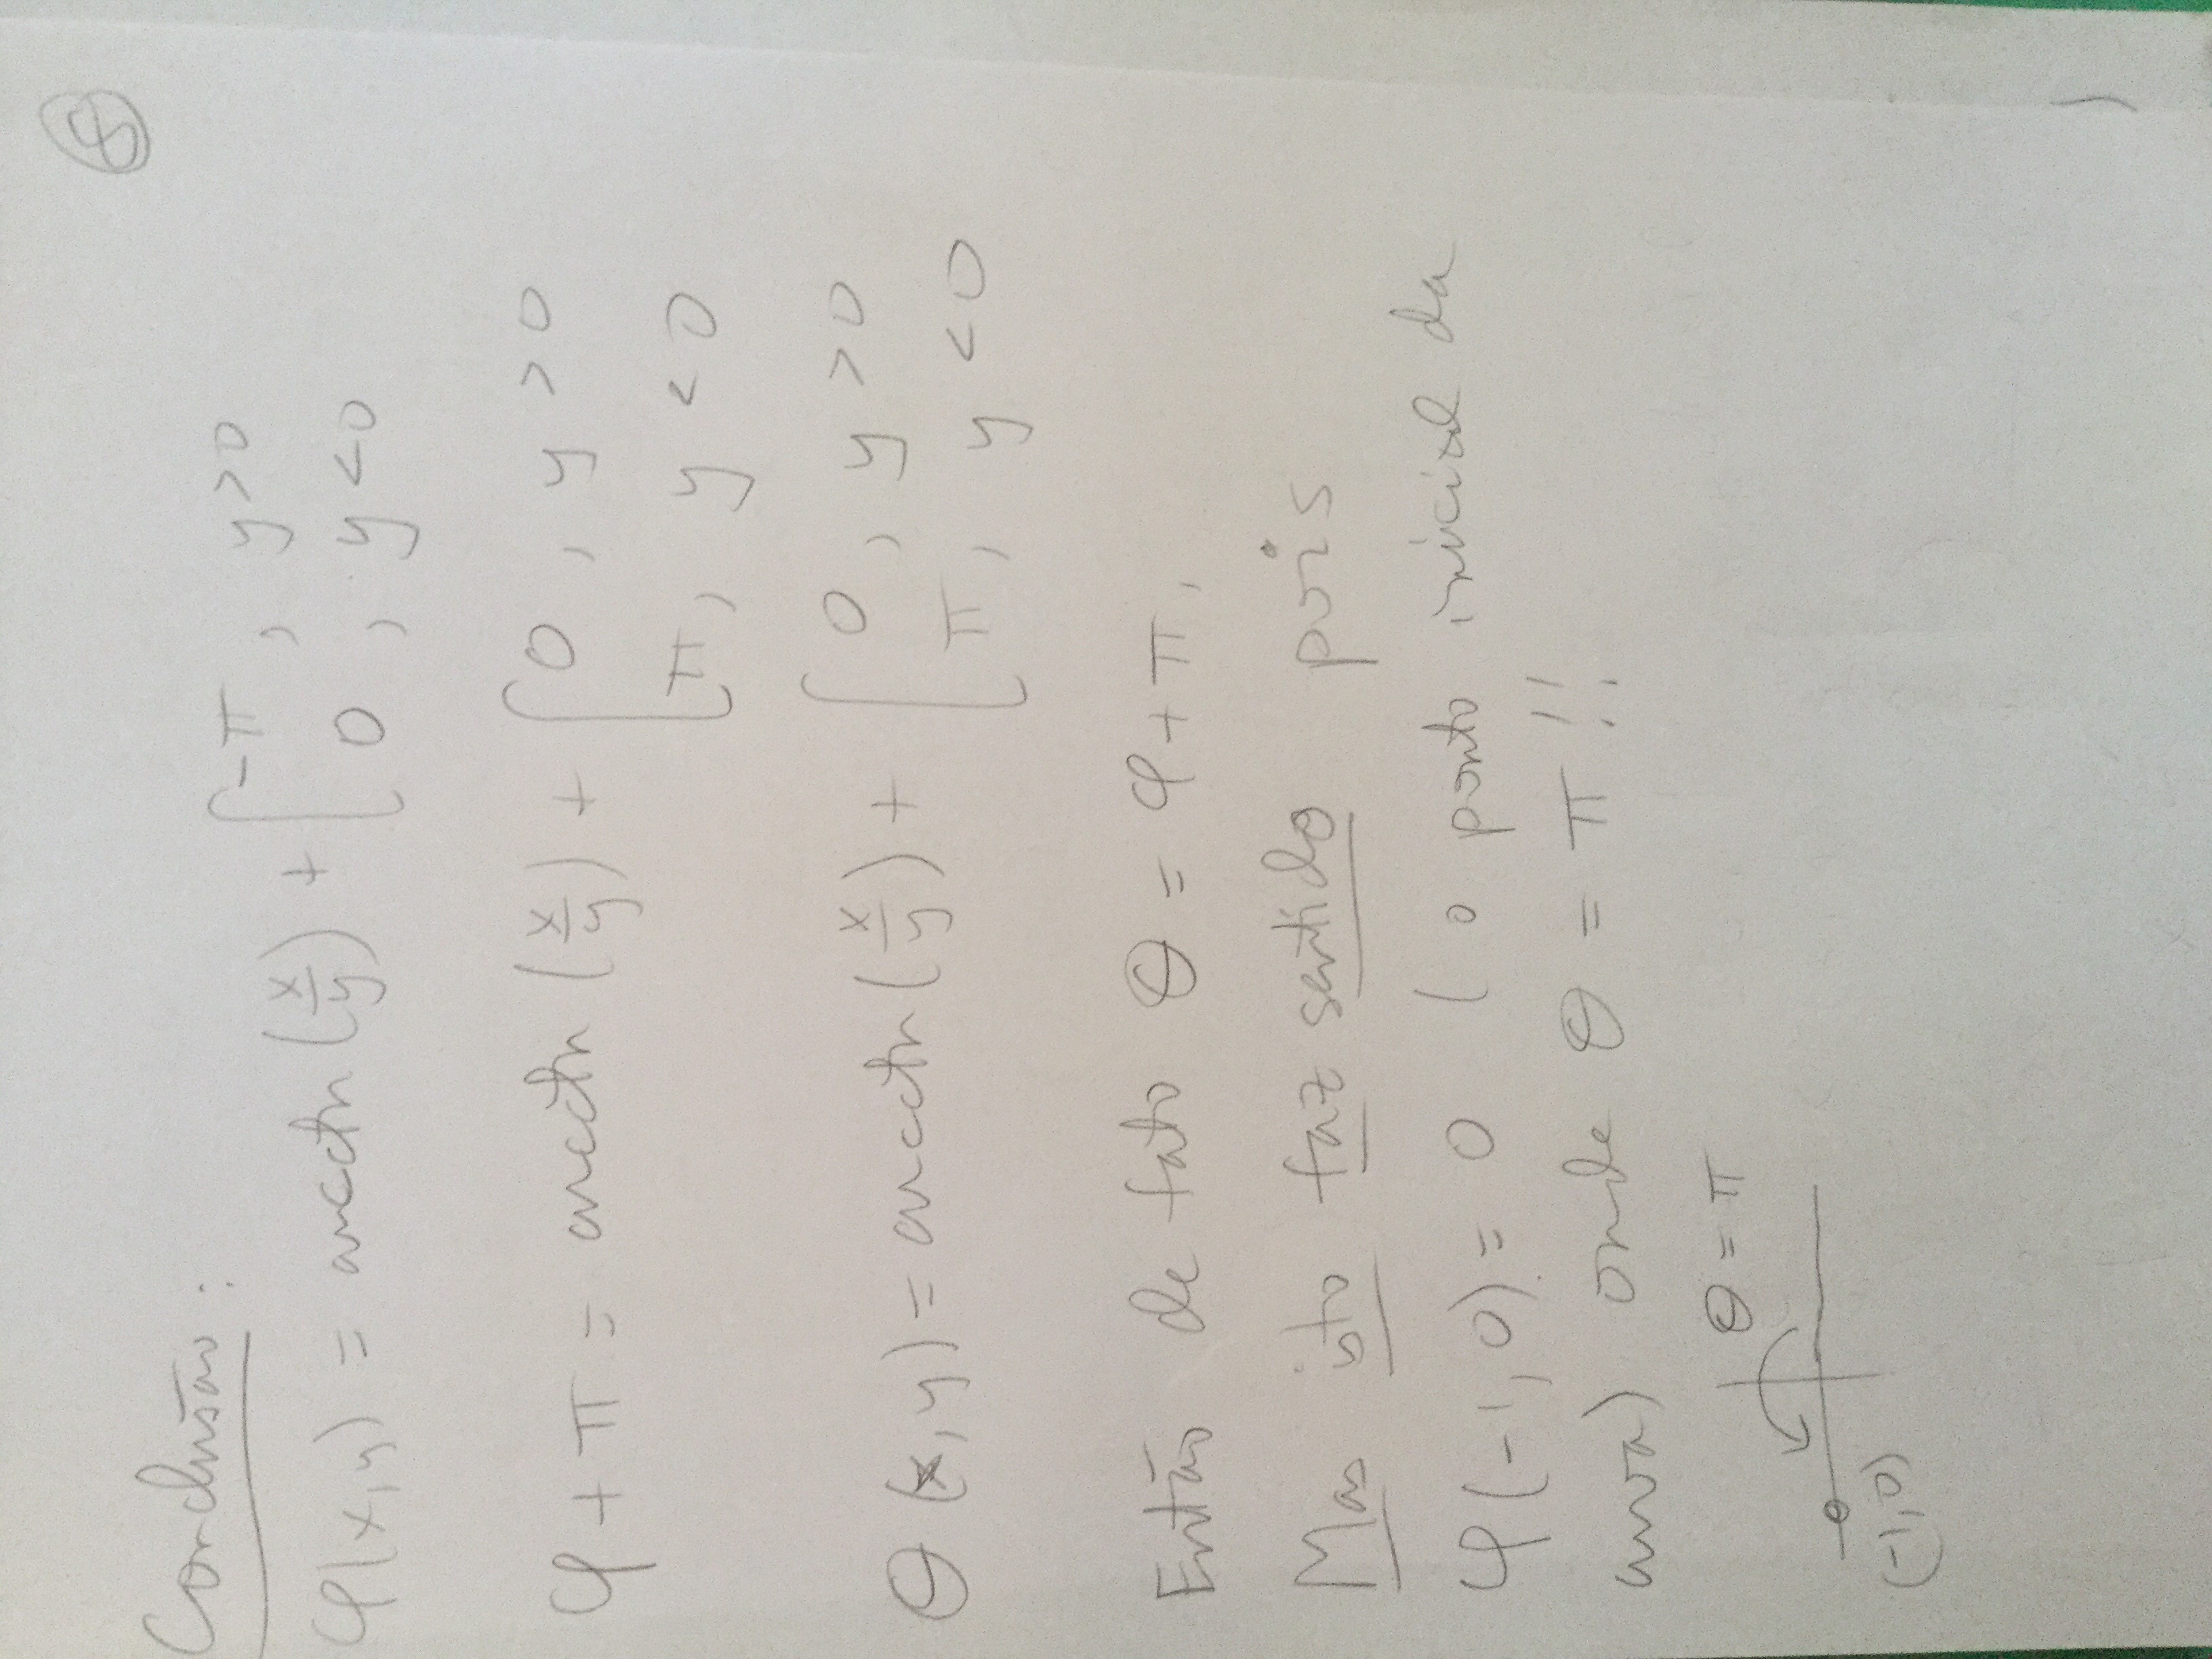 8
Conclusão:
φ(x,y) = arcctn (x/y) + { -π, y>0
0, y<0
φ + π = arcctn (x/y) + { 0, y>0
π, y<0
θ(x,y) = arcctn (x/y) + { 0, y>0
π, y<0
Então de fato θ = φ + π,
Mas isto faz sentido pois
φ(-1,0) = 0 (o ponto inicial da
curva) onde θ = π !!
θ = π
(-1,0)